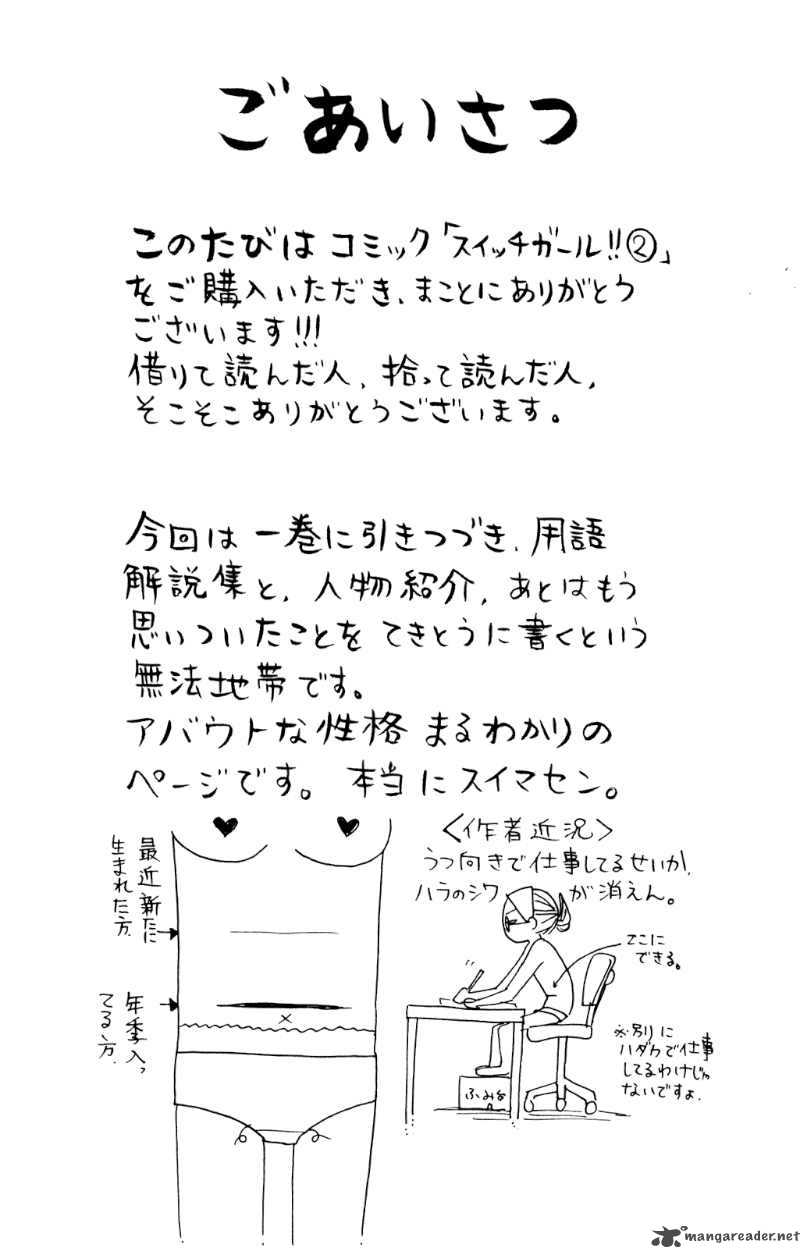 ごあいさつ
このたびは コミック「スイッチガール!!②」
をご購入いただき、まことにありがとう
ございます!!!
借りて読んだ人、拾って読んだ人、
そこそこありがとうございます。
今回は 一巻に引きつづき、用語
解説集と、人物紹介、あとはもう
思いついたことを てきとうに書くという
無法地帯です。
アバウトな性格 まるわかりの
ページです。 本当に スイマセン。
最近新たに
生まれた方。
年季入っ
てる方。
〈作者近況〉
うつ向きで仕事してるせいか、
ハラのシワ が 消えん。
ここに
できる。
※別に
ハダカで仕事
してるわけじゃ
ないですよ。
ふみ台
mangareader.net